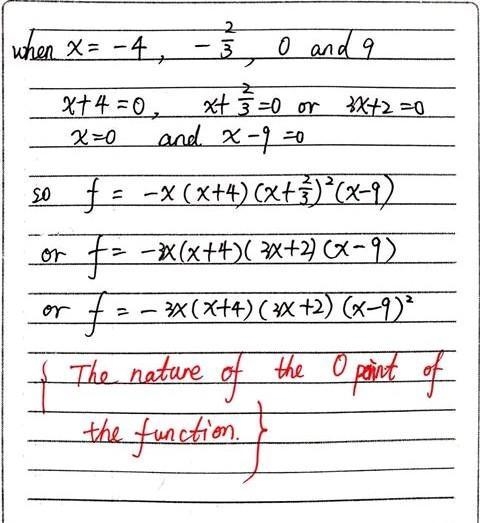 when x = -4, -2/3, 0 and 9
x+4=0, x+2/3=0 or 3x+2=0
x=0 and x-9=0
so f = -x(x+4)(x+2/3)²(x-9)
or f = -3x(x+4)(3x+2)(x-9)
or f = -3x(x+4)(3x+2)(x-9)²
{ The nature of the 0 point of
the function. }